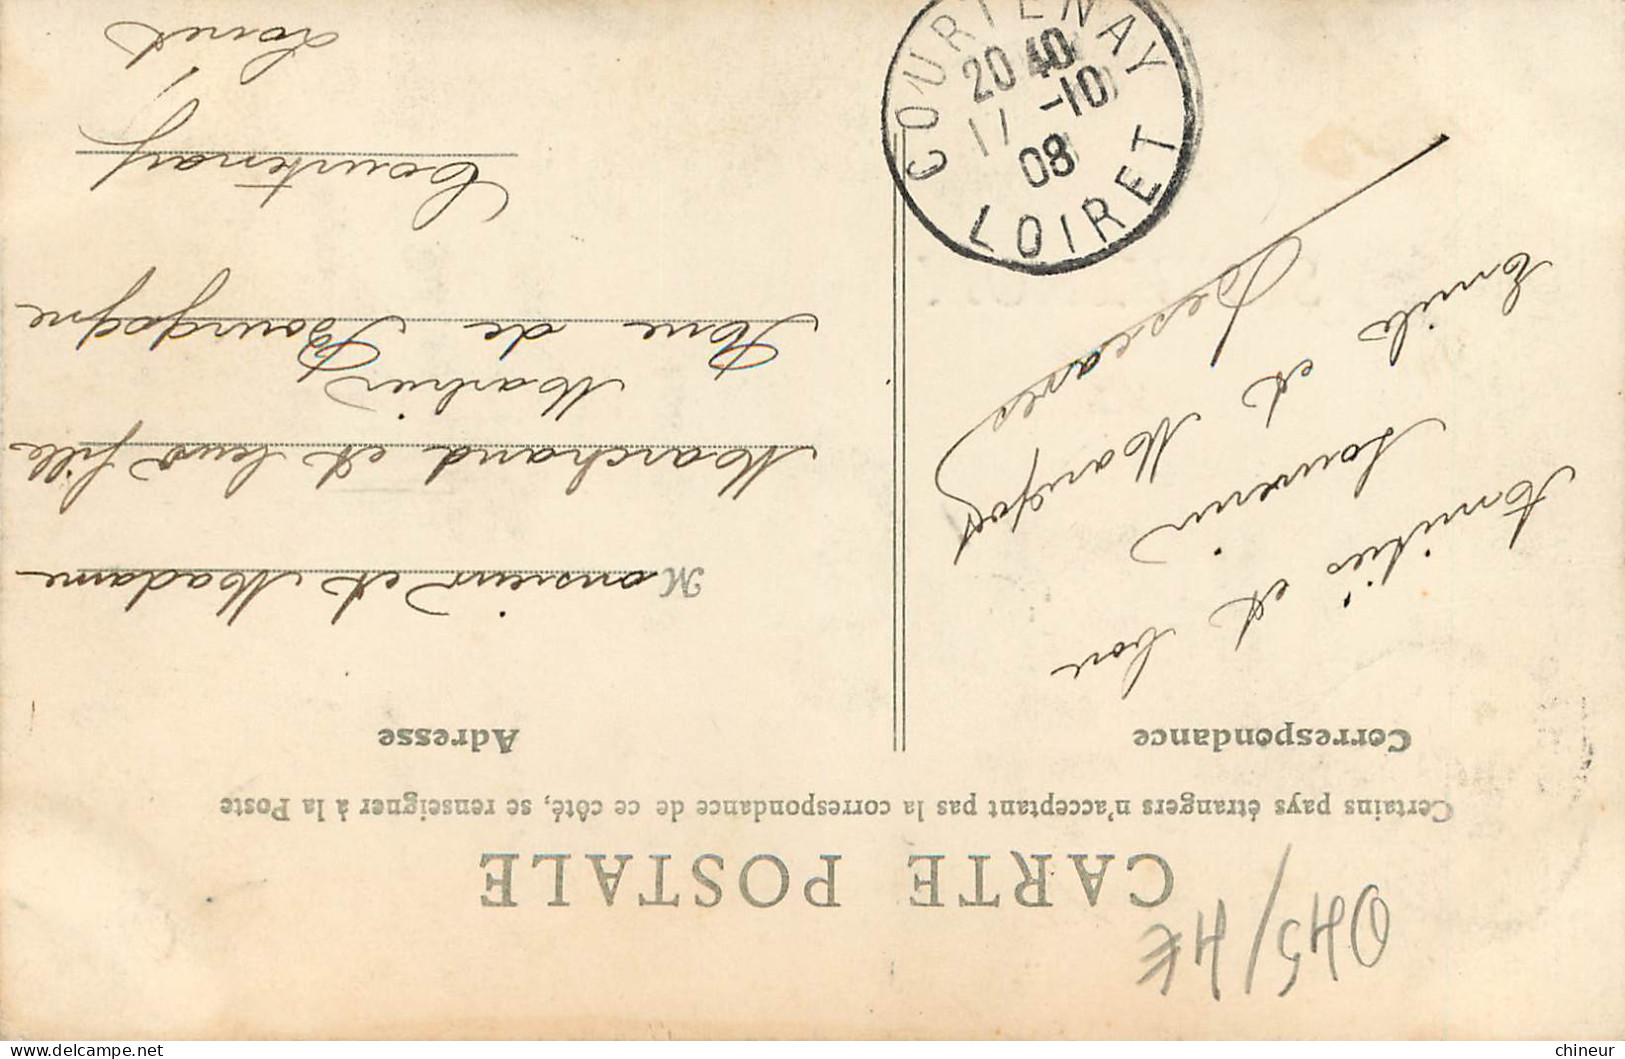 0H5/4€
CARTE POSTALE
Certains pays étrangers n'acceptant pas la correspondance de ce côté, se renseigner à la Poste
Correspondance
Amitiés et bon
Souvenir
Emile et Margot
Adresse
Monsieur et Madame
Marchand et leur fille
Marbrier
Rue de Bourgogne
Courtenay
Loiret
COURTENAY
20 40
17 -10
08
LOIRET
chineur